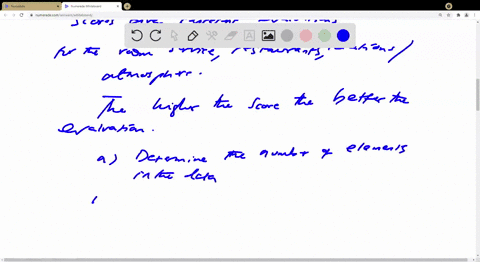 for the room service, restaurants, locations /
atmosphere.
The higher the score the better the
evaluation.
a) Determine the number of elements
in the data